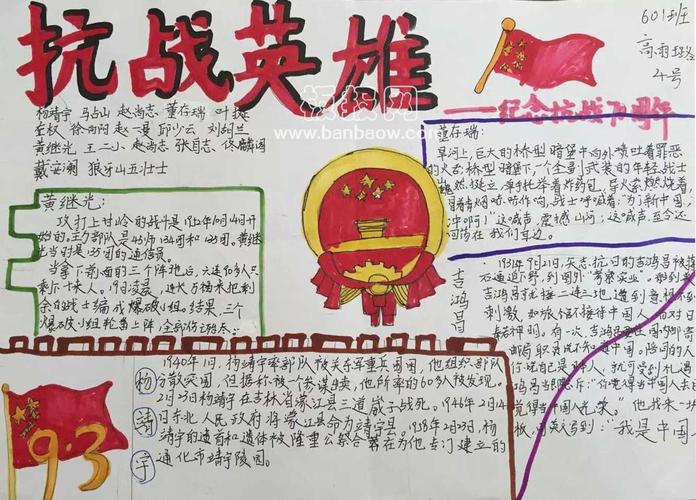 抗战英雄
601班
高雨
4号
——纪念抗战70周年
板报网
www.banbaow.com
杨靖宇 马占山 赵尚志 董存瑞 叶挺
左权 徐向前 赵一曼 邱少云 刘胡兰
黄继光 王二小 赵尚志 张自忠 佟麟阁
戴安澜 狼牙山五壮士
黄继光:
攻打上甘岭的战斗是1952年10月14日开
始的。王的部队是45师134团和135团。黄继
光当时是135团的通信员。
当拿下前面的三个阵地后,六连10多人只
剩下十来人。19日凌晨,连长万福来把剩
余的战士编成爆破小组。结果,三个
爆破小组轮番上阵,全部伤亡
董存瑞:
旱河上,巨大的桥型暗堡中向外喷吐着罪恶
的火舌桥型暗堡下,一个全副武装的年轻战士
巍然挺立,单手托举着炸药包,导火索燃烧着
冒着青烟 作响,战士呼喊着:“为了新中国,
冲啊!”这喊声,震撼山河;这喊声,至今还
回荡在我们耳边。
吉鸿昌
1931年9月21日,矢志抗日的吉鸿昌被
石逼迫下野,到国外“考察实业”。船到
吉鸿昌就接二连三地遭到意想
刺激,如旅馆不接待中国人 而对日
有一次,吉鸿昌 邮寄
邮局职员说不知道中国。陪同的人
说自己是日本人,就可受到礼遇
鸿昌当即怒斥:“你觉得当中国人丢
觉得当中国人光荣。”他找来一块
板, 写到:“我是中国
杨靖宇
1940年1月,杨靖宇率部队被关东军重兵围困,他组织部队
分散突围,但据称被一个参谋出卖,他所率的60多人被发现。
2月23日杨靖宇在吉林省蒙江县三道崴子战死。1946年2月14
日东北人民政府将蒙江县命为靖宇县。1958年2月23日,杨
靖宇的遗首和遗体被隆重公祭合葬在为他专门建立的
通化市靖宇陵园。
9.3